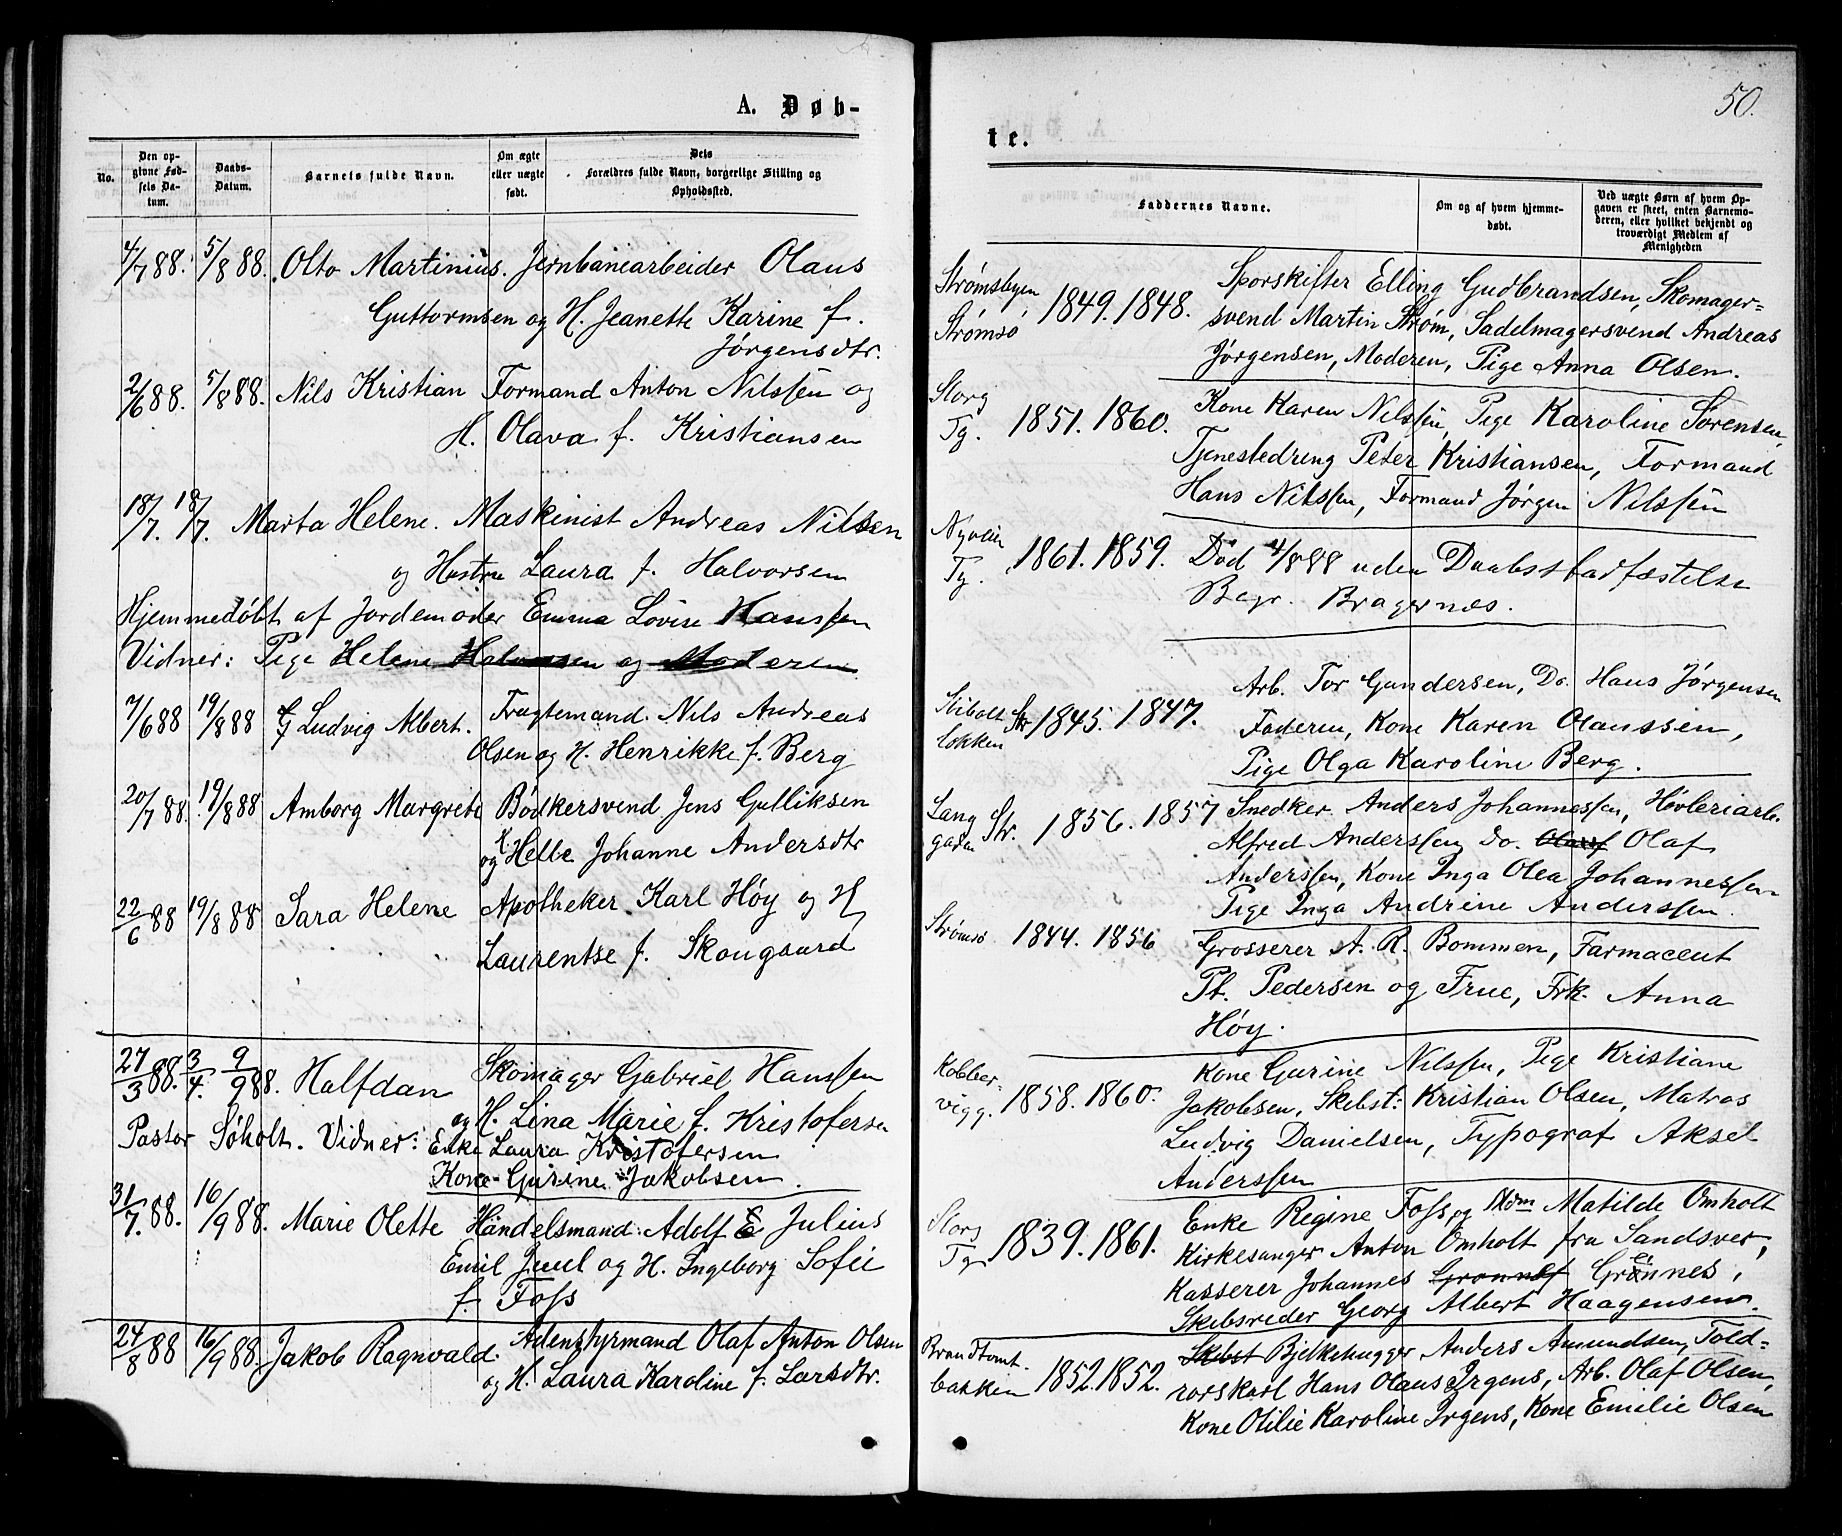 A. Døb-
No.
Den op-
givne Fød-
sels Da-
tum.
Daabs-
Datum.
Barnets fulde Navn.
Om ægte
eller uægte
født.
Dets
Forældres fulde Navn, borgerlige Stilling og
Opholdssted.
4/7 88. 5/8 88. Olto Martinius. Jernbanearbeider Olaus
Guttormsen og H. Jeanette Karine f.
Jørgensdtr.
2/6 88. 5/8 88. Nils Kristian Formand Anton Nilssen og
H. Olava f. Kristiansen
18/7. 18/7. Marta Helene. Maskinist Andreas Nilsen
og Hustru Laura f. Halvorsen
Hjemmedøbt af Jordemoder Emma Lovise Hanssen
Vidner: Pige Helene Halvorsen og Moderen
7/6 88 19/8 88 Ludvig Albert. Fragtemand. Nils Andreas
Olsen og H. Henrikke f. Berg
20/7 88. 19/8 88 Amborg Margrete Bødkersvend Jens Gulliksen
og H. Helle Johanne Andersdtr
22/6 88 19/8 88 Sara Helene Apotheker Karl Høy og H
Laurentse f. Skougaard
27/3 88. 3/4. 9/9 88. Halfdan Skomager Gabriel Hanssen
og H. Lina Marie f. Kristofersen
Pastor Søholt. Vidner: Enke Laura Kristofersen
Kone Gurine Jakobsen.
31/7. 88. 16/9 88. Marie Olette Handelsmand. Adolf E Julius
Emil Juul og H. Ingeborg Sofie
f. Foss
24/8 88 16/9 88. Jakob Ragnvald. Adenstyrmand Olaf Anton Olsen
og H. Laura Karoline f. Larsdtr.
50.
te.
Faddernes Navne.
Om og af hvem hjemme-
døbt.
Ved uægte Børn af hvem Op-
gaven er skeet, enten Barnemo-
deren, eller hvilket bekjendt og
troværdigt Medlem af
Menigheden
Strømsbyen,
Strømsø
1849. 1848.
Sporskifter Elling Gudbrandsen, Skomager-
svend Martin Strøm, Sadelmagersvend Andreas
Jørgensen, Moderen, Pige Anna Olsen.
Storg
Tg.
1851. 1860.
Kone Karen Nilssen, Pige Karoline Sørensen,
Tjenestedreng Peter Kristiansen, Formand
Hans Nilssen, Formand Jørgen Nilssen
Nyveien
Tg.
1861. 1859.
Död 4/8 88 uden Daabsstadfæstelse
Begr. Bragernæs.
løkken Str 1845. 1847.
Arb. Tor Gundersen, Do. Hans Jørgensen
Faderen, Kone Karen Olaussen,
Pige Olga Karoline Berg.
Lang
gaden Str. 1856. 1857
Snedker Anders Johannessen, Høvleriarb.
Alfred Anderssen Do. Olauf Olaf
Anderssen, Kone Inga Olea Johannessen
Pige Inga Andrine Anderssen.
Strømsø 1844. 1856
Grosserer A. R. Bommen, Farmaceut
Pt. Pedersen og Frue, Frk. Anna
Høy.
Kobber-
vigg. 1858. 1860.
Kone Gurine Nilssen, Pige Kristiane
Jakobsen, Skibst: Kristian Olsen, Matros
Ludvig Danielsen, Typograf Aksel
Anderssen
Storg
Tg 1839. 1861.
Enke Regine Foss og Mdm Matilde Omholt
Kirkesanger Anton Omholt fra Sandsver,
Kasserer Johannes Grönnes,
Skibsreder Georg Albert Haagensen.
Brandtomt-
bakken 1852. 1852.
Skibst Bjelkehugger Anders Amundsen, Told-
rorskarl Hans Olaus Irgens, Arb. Olaf Olsen,
Kone Otilie Karoline Irgens, Kone Emilie Olsen